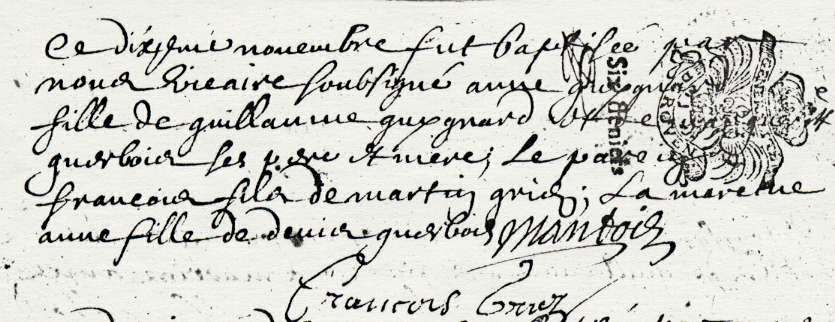 Ce dixieme novembre fut baptisée par
nous vicaire soubsigné anne guignard
fille de guillaume guignard et de
guerbois ses pere et mere; Le parein
francois fils de martin gris; La mareine
anne fille de denis guerbois Mantois
Six deniers
ROVEN
Francois Gris